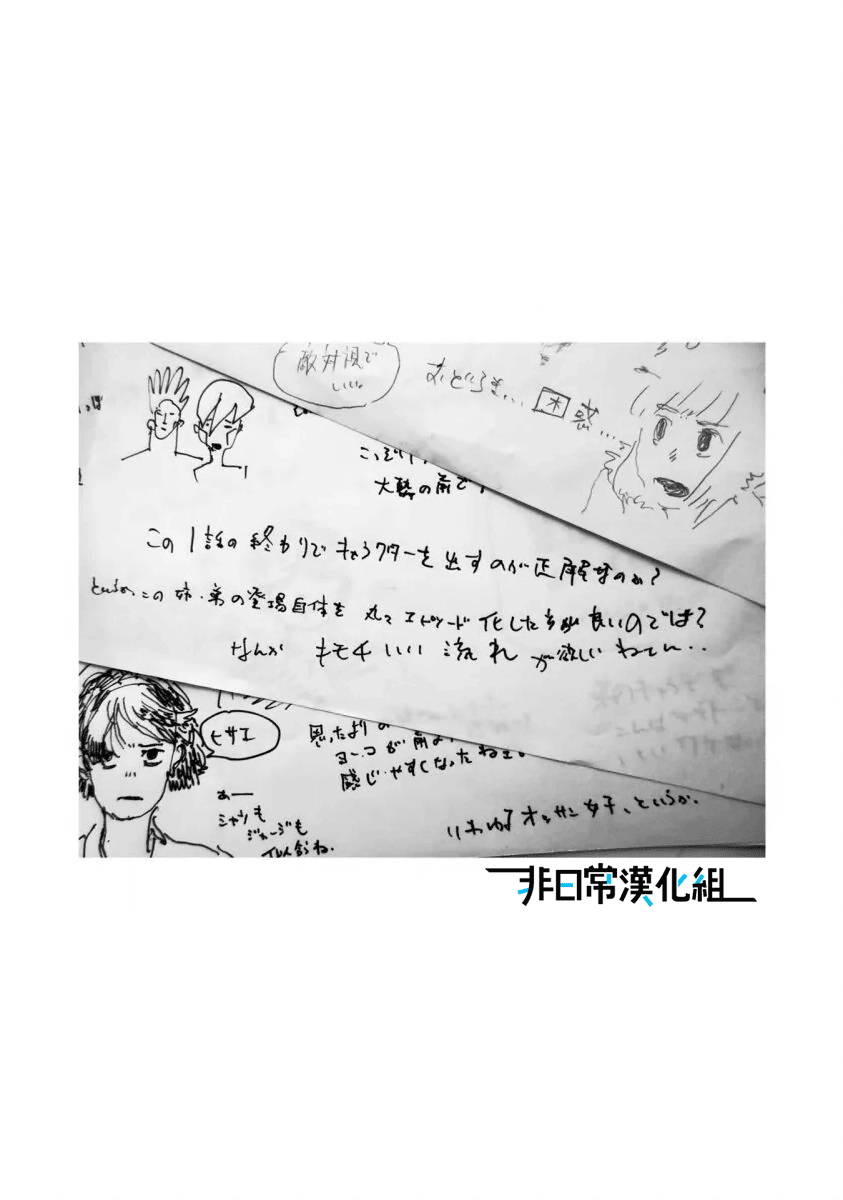 敵対視で
いい。
おどろき… 困惑…
大勢の前で
この1話の終わりでキャラクターを出すのが正解なのか?
というか、この姉・弟の登場自体を 丸々エピソード化した方が良いのでは?
なんか キモチいい 流れ が欲しい ねでん..
ヒサエ
思ったより
ヨーコが前よ
感じやすくなったねぇ。
あー
シャツも
ジャージも
いわゆるオッサン女子、というか、
非日常漢化組